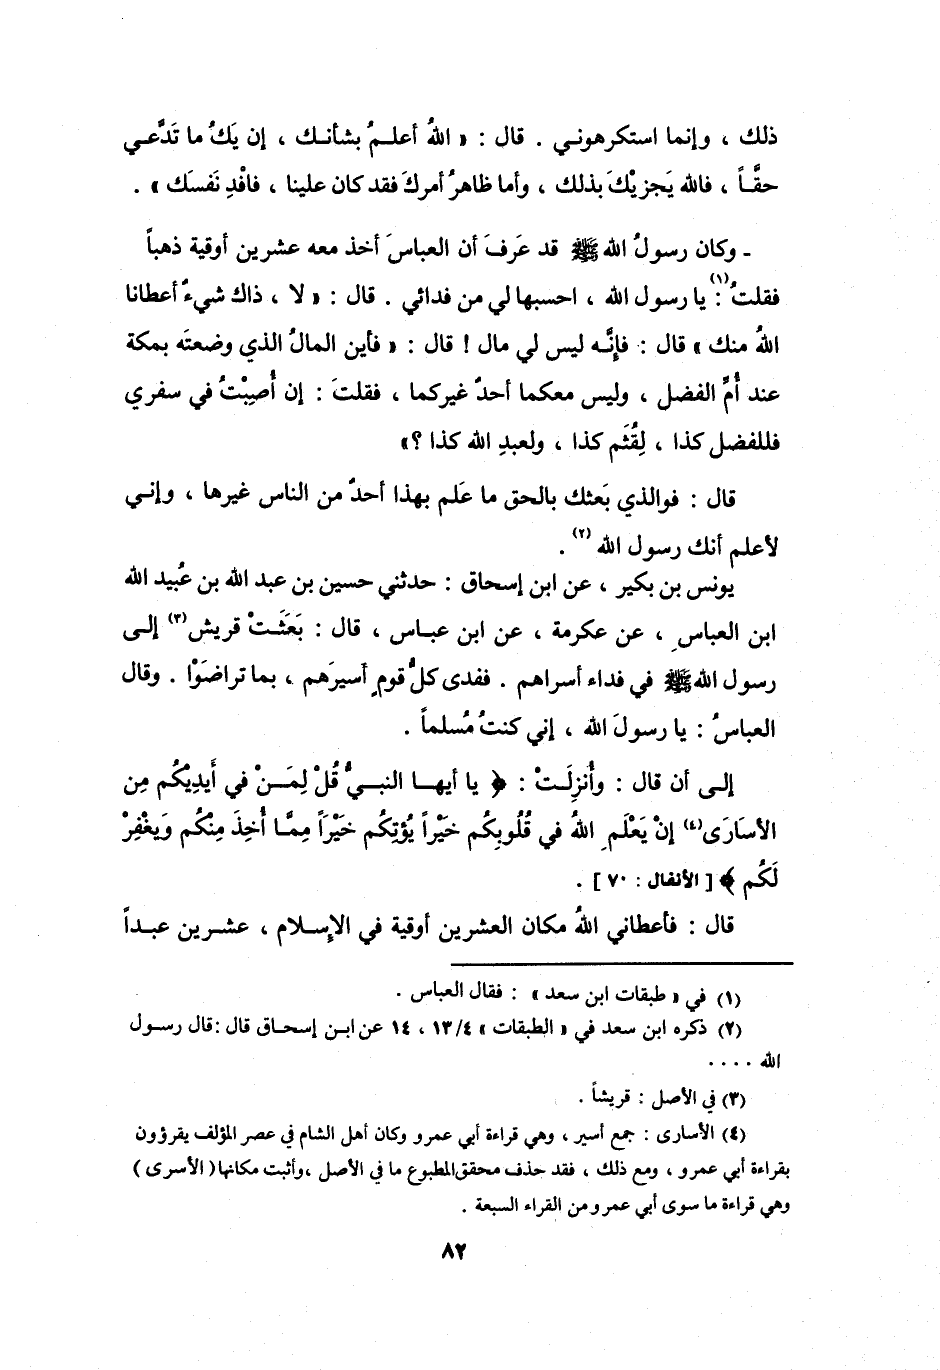 ذلك ، وإنما استكرهوني . قال : « اللهُ أعلـمُ بشأنـك ، إن يَكُ ما تَدَّعـي
حقَّـاً ، فالله يَجزيْكَ بذلك ، وأما ظاهرُ أمركَ فقد كان علينا ، فافْدِ نَفسَك » .
ـ وكان رسولُ الله ﷺ قد عَرفَ أن العباسَ أخذ معه عشرين أوقية ذهباً
فقلتُ(١) : يا رسول الله ، احسبها لي من فدائي . قال : « لا ، ذاك شيءٌ أعطانا
اللهُ منك » قال : فإنَّـه ليس لي مال ! قال : « فأين المالُ الذي وضعتَه بمكة
عند أُمِّ الفضل ، وليس معكما أحدٌ غيركما ، فقلتَ : إن أُصِبْتُ في سفري
فللفضل كذا ، لِقُثَم كذا ، ولعبدِ الله كذا ؟»
قال : فوالذي بَعثك بالحق ما عَلم بهذا أحدٌ من الناس غيرها ، وإنـي
لأعلم أنك رسول الله (٢) .
يونس بن بكير ، عن ابن إسحاق : حدثني حسين بن عبد الله بن عُبيد الله
ابن العباسِ ، عن عكرمة ، عن ابن عبـاس ، قال : بَعَثَـتْ قريش(٣) إلـى
رسول الله ﷺ في فداء أسراهم . ففدى كلُّ قومٍ أسيرَهم ، بما تراضَوْا . وقال
العباسُ : يا رسولَ الله ، إني كنتُ مُسلماً .
إلـى أن قال : وأُنزِلَـتْ : ﴿ يا أيهـا النبـيُّ قُلْ لِمَـنْ في أَيدِيْكُم مِن
الأسَارَى(٤) إنْ يَعْلَمِ اللهُ في قُلُوبِكُم خَيْراً يُؤتِكُم خَيْرَاً مِمَّا أُخِذَ مِنْكُم وَيغْفِرْ
لَكُم ﴾ [ الأنفال : ٧٠ ] .
قال : فأعطاني اللهُ مكان العشرين أوقية في الإسـلام ، عشـرين عبـداً
(١) في « طبقات ابن سعد » : فقال العباس .
(٢) ذكره ابن سعد في « الطبقات » ١٣/٤ ، ١٤ عن ابـن إسحـاق قال :قال رسـول
الله . . . .
(٣) في الأصل : قريشاً .
(٤) الأسارى : جمع أسير ، وهي قراءة أبي عمرو وكان أهل الشام في عصر المؤلف يقرؤون
بقراءة أبي عمرو ، ومع ذلك ، فقد حذف محقق المطبوع ما في الأصل ،وأثبت مكانها( الأسرى )
وهي قراءة ما سوى أبي عمرو من القراء السبعة .
٨٢